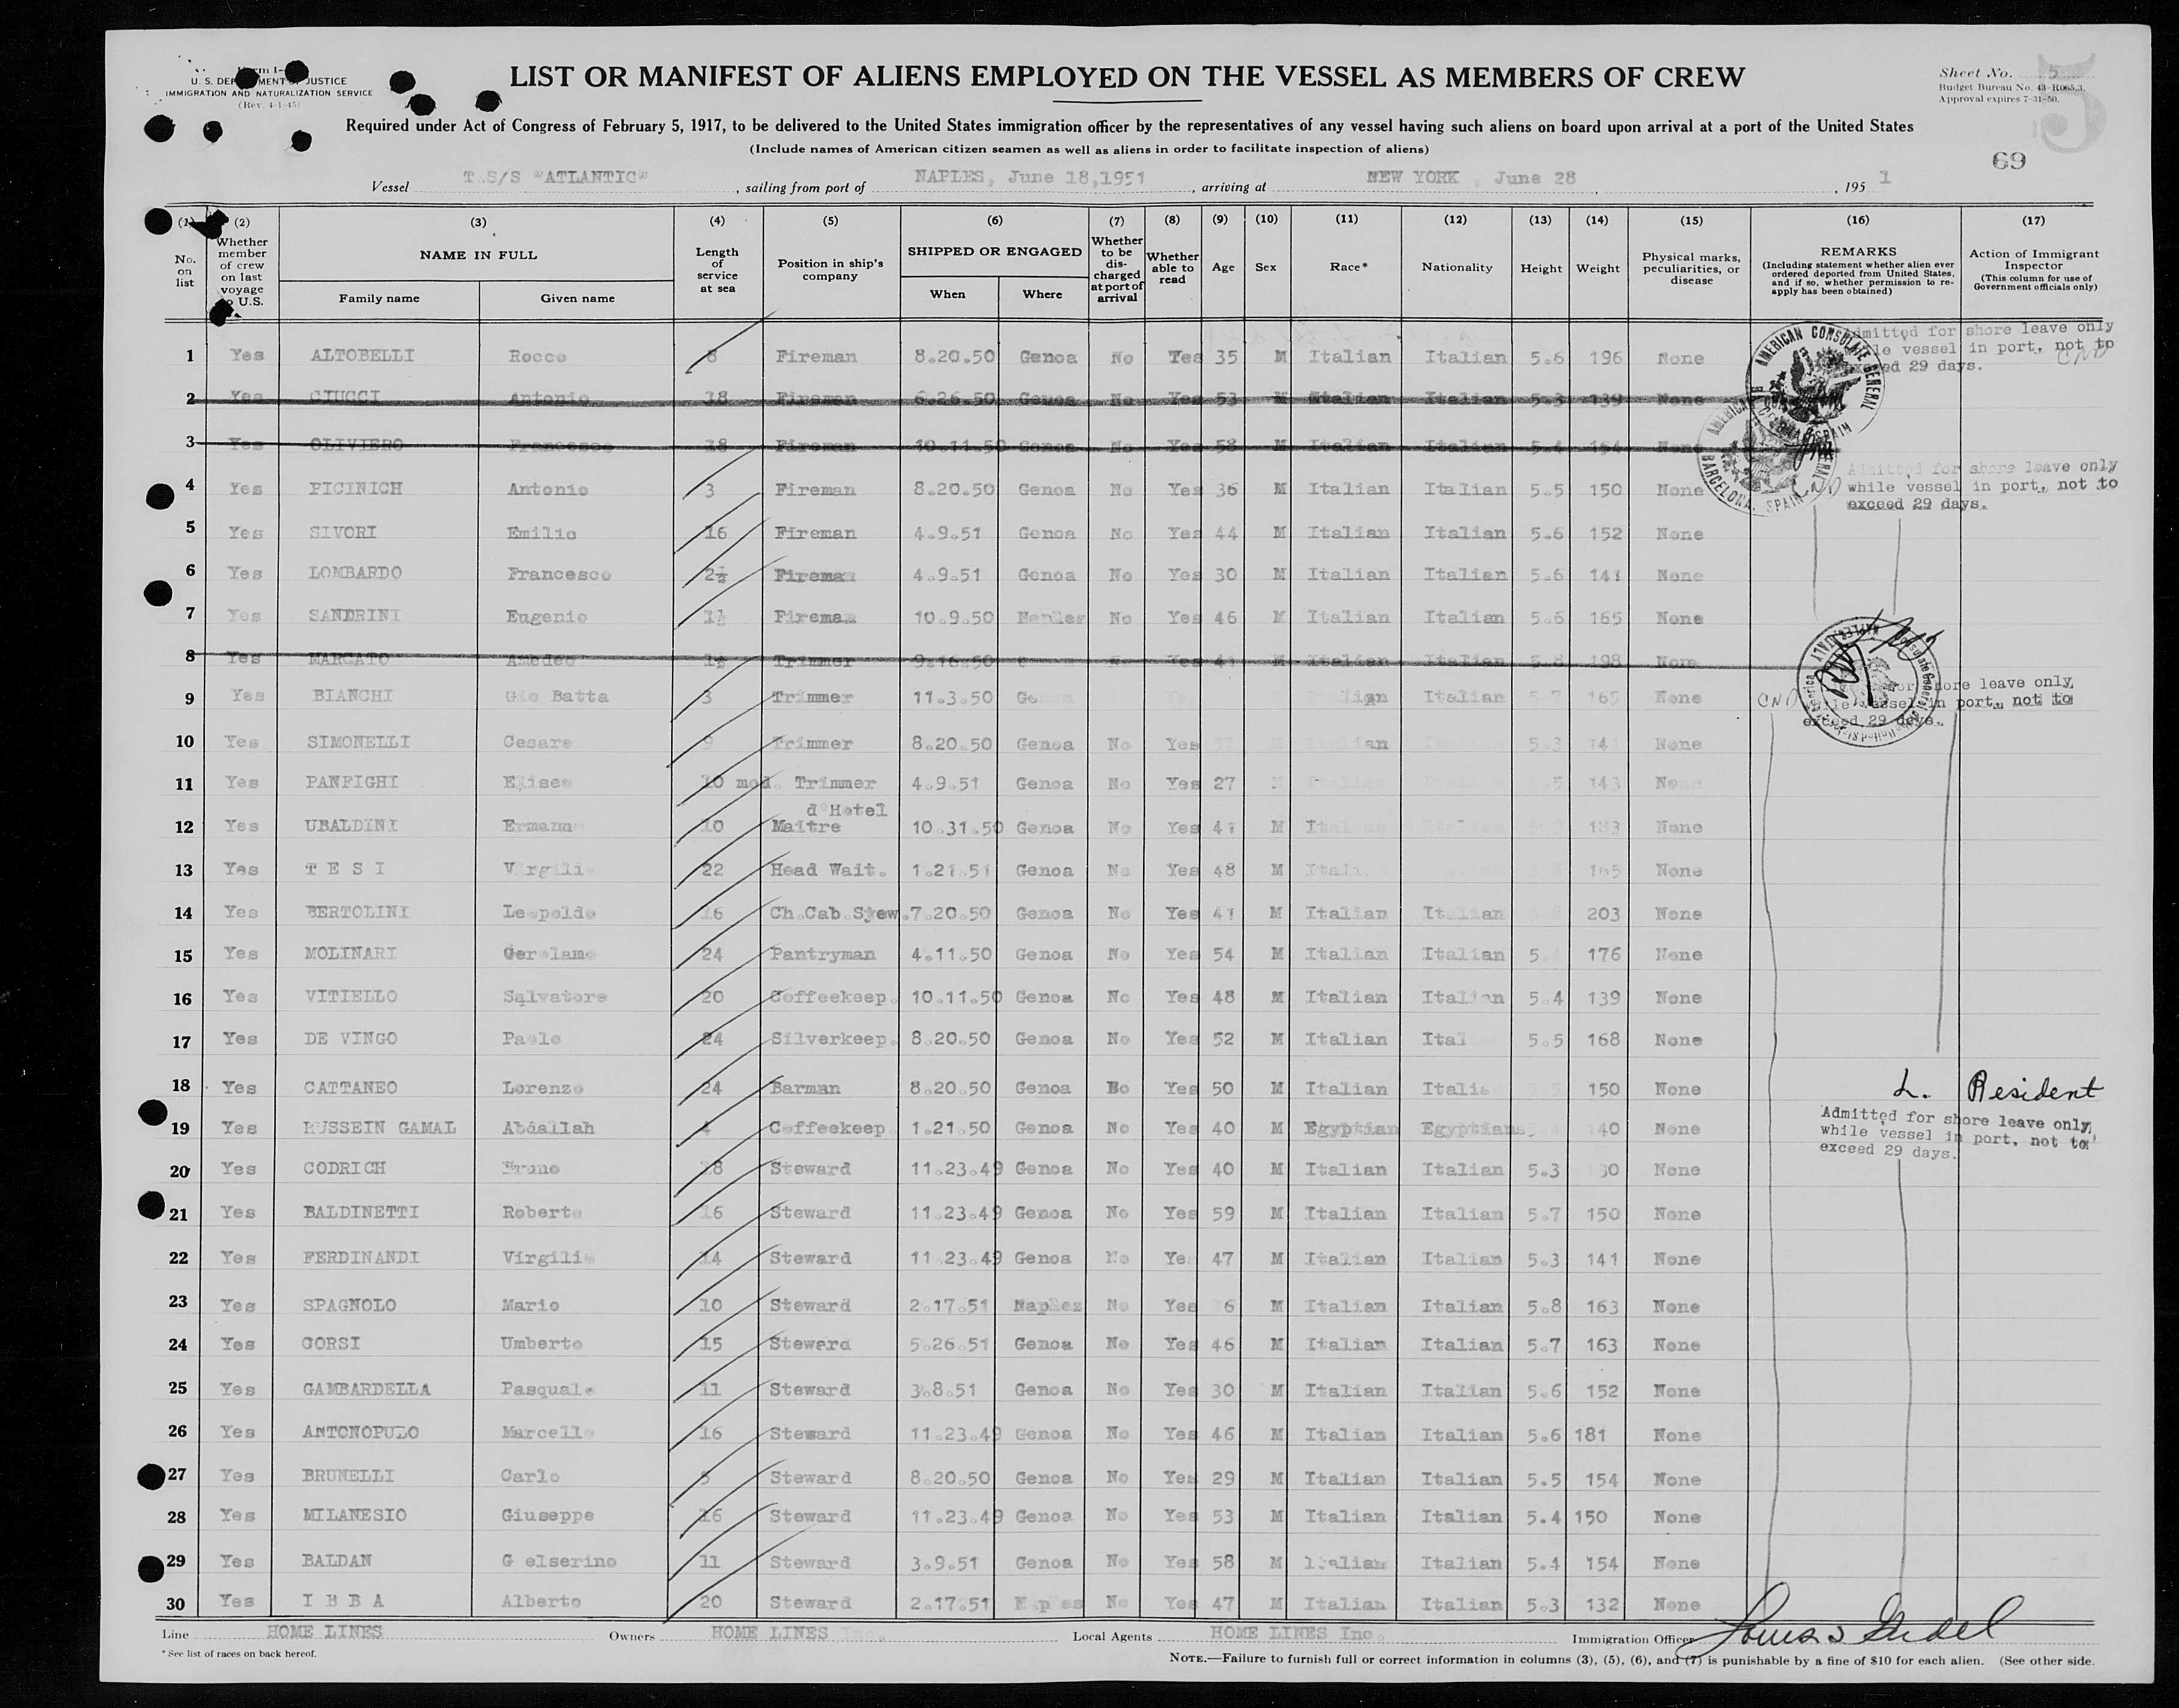 Form I-
U. S. DEPARTMENT OF JUSTICE
IMMIGRATION AND NATURALIZATION SERVICE
(Rev. 4-1-45)
LIST OR MANIFEST OF ALIENS EMPLOYED ON THE VESSEL AS MEMBERS OF CREW
Sheet No. 5
Budget Bureau No. 43-R065.3.
Approval expires 7-31-50.
5
Required under Act of Congress of February 5, 1917, to be delivered to the United States immigration officer by the representatives of any vessel having such aliens on board upon arrival at a port of the United States
(Include names of American citizen seamen as well as aliens in order to facilitate inspection of aliens)
69
Vessel T.S/S "ATLANTIC" , sailing from port of NAPLES, June 18,1951 , arriving at NEW YORK , June 28 , 195 1
(1) (2) (3) (4) (5) (6) (7) (8) (9) (10) (11) (12) (13) (14) (15) (16) (17)
No. on list
Whether member of crew on last voyage to U.S.
NAME IN FULL
Family name Given name
Length of service at sea
Position in ship's company
SHIPPED OR ENGAGED
When Where
Whether to be discharged at port of arrival
Whether able to read
Age Sex Race* Nationality Height Weight
Physical marks, peculiarities, or disease
REMARKS
(Including statement whether alien ever ordered deported from United States, and if so, whether permission to re-apply has been obtained)
Action of Immigrant Inspector
(This column for use of Government officials only)
1 Yes ALTOBELLI Rocco 8 Fireman 8.20.50 Genoa No Yes 35 M Italian Italian 5.6 196 None
Admitted for shore leave only
while vessel in port, not to
exceed 29 days.
CND
AMERICAN CONSULATE GENERAL BARCELONA, SPAIN
2 Yes CIUCCI Antonio 18 Fireman 6.26.50 Genoa No Yes 53 M Italian Italian 5.3 139 None
3 Yes OLIVIERO Francesco 18 Fireman 10.11.50 Genoa No Yes 58 M Italian Italian 5.4 154 None
AMERICAN CONSULATE GENERAL BARCELONA, SPAIN
4 Yes PICINICH Antonio 3 Fireman 8.20.50 Genoa No Yes 36 M Italian Italian 5.5 150 None
CND
Admitted for shore leave only
while vessel in port, not to
exceed 29 days.
5 Yes SIVORI Emilio 16 Fireman 4.9.51 Genoa No Yes 44 M Italian Italian 5.6 152 None
6 Yes LOMBARDO Francesco 2½ Fireman 4.9.51 Genoa No Yes 30 M Italian Italian 5.6 141 None
7 Yes SANDRINI Eugenio 1½ Fireman 10.9.50 Naples No Yes 46 M Italian Italian 5.6 165 None
8 Yes MARCATO Amedeo 1½ Trimmer 9.16.50 Yes 41 M Italian Italian 5.8 198 None
9 Yes BIANCHI Gio Batta 3 Trimmer 11.3.50 Ge Italian Italian 5.7 165 None
CND
for shore leave only,
while vessel in port, not to
exceed 29 days.
10 Yes SIMONELLI Cesare 9 Trimmer 8.20.50 Genoa No Yes Italian 5.3 None
11 Yes PANFIGHI Elisee 10 mod. Trimmer 4.9.51 Genoa No Yes 27 Italian 143 None
d'Hotel
12 Yes UBALDINI Ermann 10 Maitre 10.31.50 Genoa No Yes 41 M None
13 Yes T E S I Virgili 22 Head Wait. 1.21.51 Genoa No Yes 48 M Ital 165 None
14 Yes BERTOLINI Leopoldo 16 Ch.Cab.Stew. 7.20.50 Genoa No Yes 41 M Italian Italian 203 None
15 Yes MOLINARI Gerolamo 24 Pantryman 4.11.50 Genoa No Yes 54 M Italian Italian 5. 176 None
16 Yes VITIELLO Salvatore 20 Coffeekeep. 10.11.50 Genoa No Yes 48 M Italian Italian 5.4 139 None
17 Yes DE VINGO Paolo 24 Silverkeep. 8.20.50 Genoa No Yes 52 M Italian Ital 5.5 168 None
18 Yes CATTANEO Lorenzo 24 Barman 8.20.50 Genoa Bo Yes 50 M Italian Italia 150 None L. Resident
19 Yes HUSSEIN GAMAL Abdallah 4 Coffeekeep. 1.21.50 Genoa No Yes 40 M Egyptian Egyptians 140 None
Admitted for shore leave only,
while vessel in port, not to
exceed 29 days.
20 Yes CODRICH Bruno 18 Steward 11.23.49 Genoa No Yes 40 M Italian Italian 5.3 None
21 Yes BALDINETTI Roberto 16 Steward 11.23.49 Genoa No Yes 59 M Italian Italian 5.7 150 None
22 Yes FERDINANDI Virgilio 14 Steward 11.23.49 Genoa No Ye 47 M Italian Italian 5.3 141 None
23 Yes SPAGNOLO Mario 10 Steward 2.17.51 Naples No Yes 6 M Italian Italian 5.8 163 None
24 Yes CORSI Umberto 15 Steward 5.26.51 Genoa No Yes 46 M Italian Italian 5.7 163 None
25 Yes GAMBARDELLA Pasquale 11 Steward 3.8.51 Genoa No Yes 30 M Italian Italian 5.6 152 None
26 Yes ANTONOPULO Marcello 16 Steward 11.23.49 Genoa No Yes 46 M Italian Italian 5.6 181 None
27 Yes BRUNELLI Carlo 5 Steward 8.20.50 Genoa No Yes 29 M Italian Italian 5.5 154 None
28 Yes MILANESIO Giuseppe 16 Steward 11.23.49 Genoa No Yes 53 M Italian Italian 5.4 150 None
29 Yes BALDAN G elserino 11 Steward 3.9.51 Genoa No Yes 58 M Italian Italian 5.4 154 None
30 Yes I B B A Alberto 20 Steward 2.17.51 Naples No Yes 47 M Italian Italian 5.3 132 None
Line HOME LINES Owners HOME LINES Inc. Local Agents HOME LINES Inc. Immigration Officer
*See list of races on back hereof.
NOTE.—Failure to furnish full or correct information in columns (3), (5), (6), and (7) is punishable by a fine of $10 for each alien. (See other side.